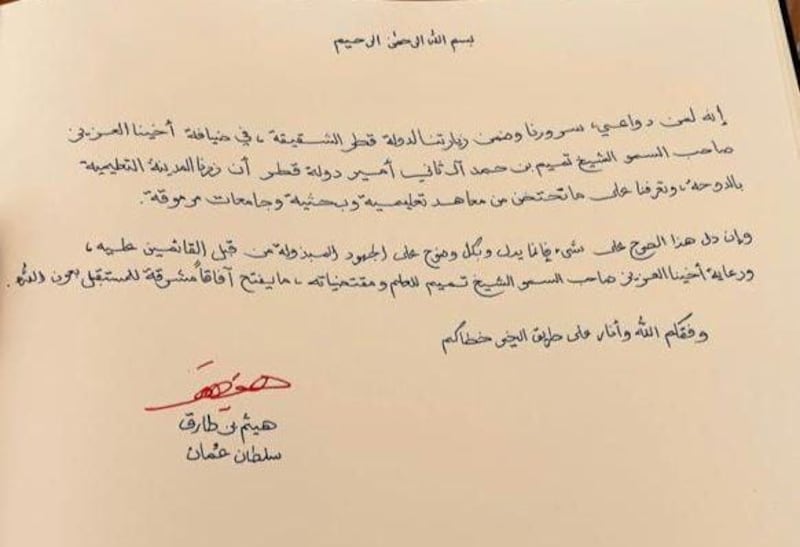 بسم الله الرحمن الرحيم
إنه لمن دواعي سرورنا وضمن زيارتنا لدولة قطر الشقيقة، في ضيافة أخينا العزيز
صاحب السمو الشيخ تميم بن حمد آل ثاني أمير دولة قطر أن زرنا المدينة التعليمية
بالدوحة، وتعرفنا على ما تحتضن من معاهد تعليمية وبحثية وجامعات مرموقة.
وإن دل هذا الصرح على شيء فإنما يدل وبكل وضوح على الجهود المبذولة من قبل القائمين عليه،
ورعاية أخينا العزيز صاحب السمو الشيخ تميم للعلم ومقتضياته، ما يفتح آفاقاً مشرقة للمستقبل بعون الله.
وفقكم الله وأنار على طريق الخير خطاكم
هيثم بن طارق
سلطان عُمان